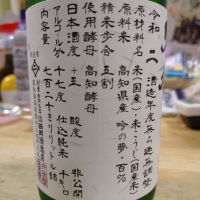 令和二酒造年度無ろ過無調整
原材料名 米(国産)・米こうじ(国産米)
原料米 高知県産 吟の夢・百%
精米歩合 五割
使用酵母 高知酵母
日本酒度 +五 酸度 非公開
アルコール分 十七度 仕込純米 千キロ
内容量 七百二十ミリリットル詰